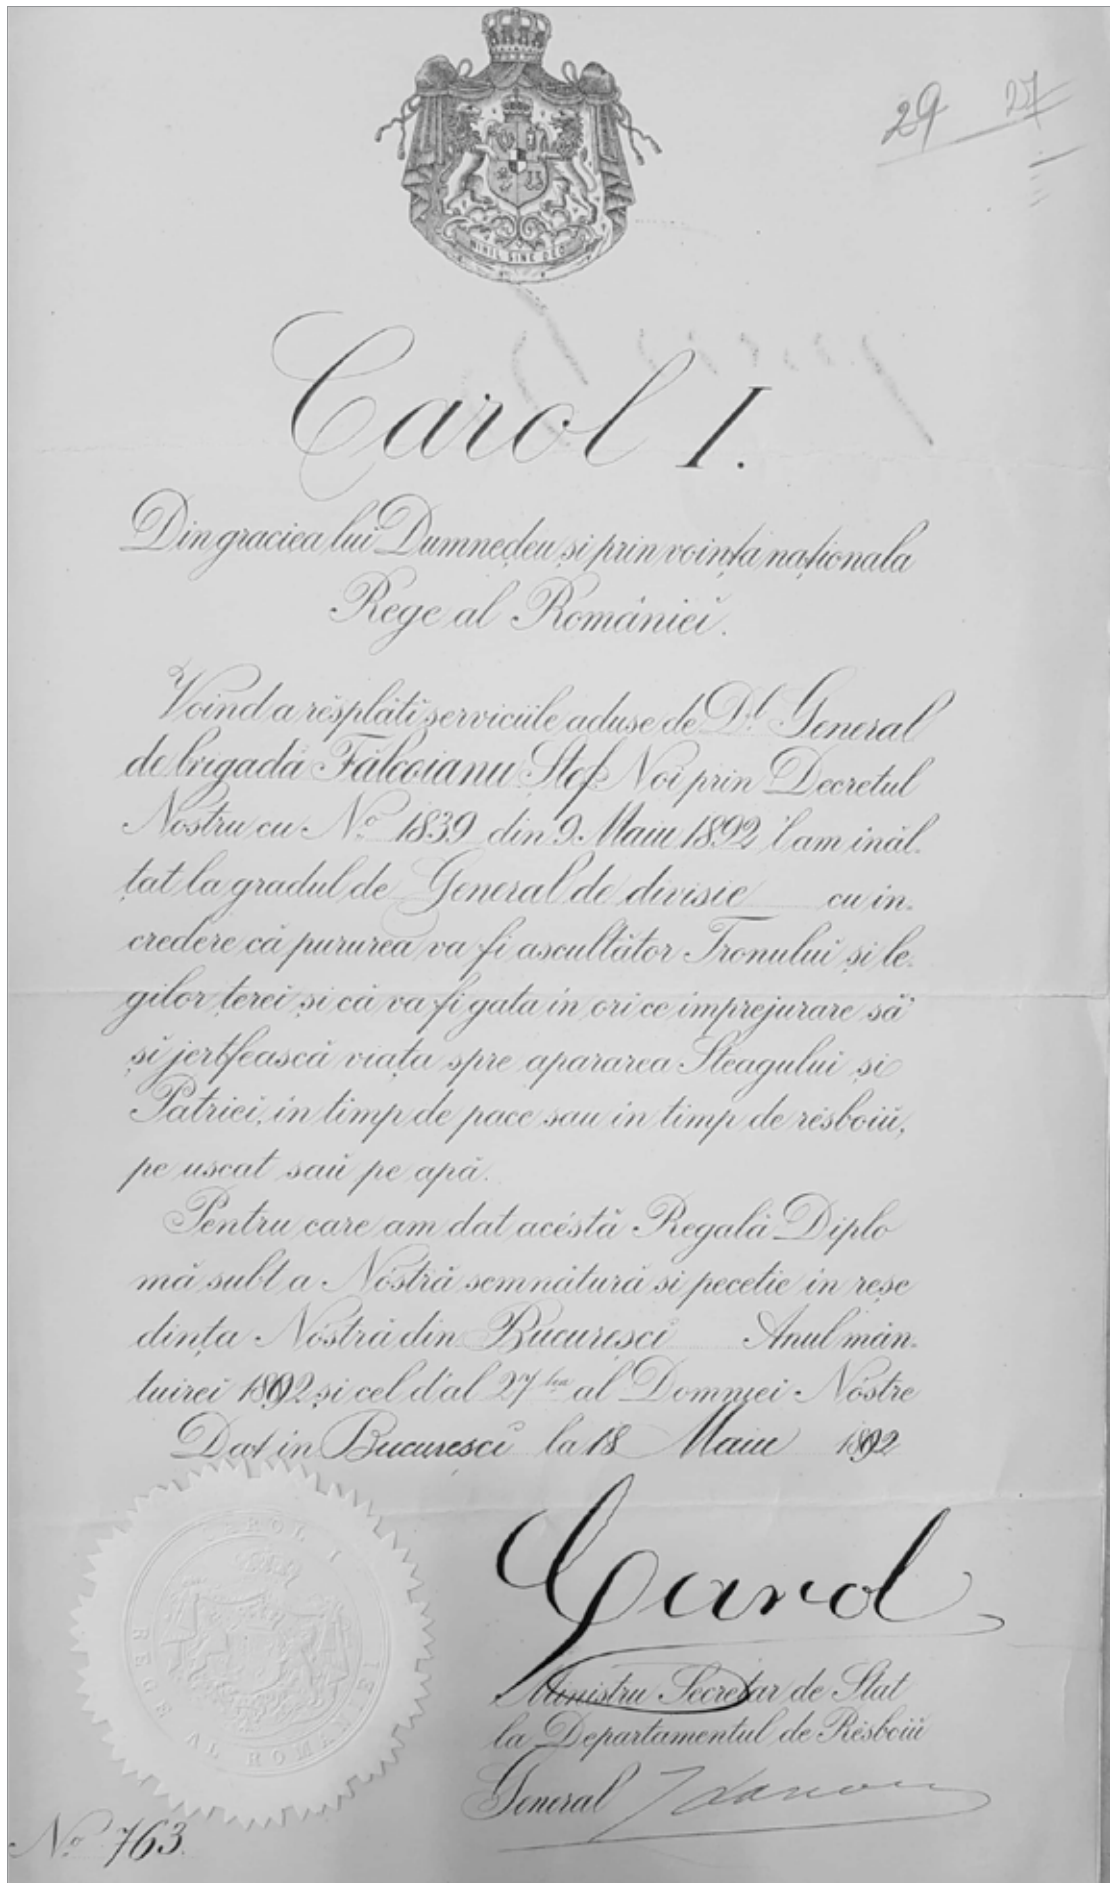 29 27
NIHIL SINE DEO
Carol I.
Din graciea lui Dumnedeu și prin voința naționala
Rege al Româniĕĭ.
Voind a rĕsplăti serviciile aduse de Dl. General
de brigadă Fălcoianu Stef. Noi prin Decretul
Nostru cu No. 1839 din 9 Maiu 1892 'l am inăl-
țat la gradul de General de divisie cu in-
credere că pururea va fi ascultător Tronuluĭ și le-
gilor țerei și că va fi gata in ori ce imprejurare să
și jertfească viața spre apararea Steagului și
Patriei, in timp de pace sau in timp de rĕsboiŭ,
pe uscat saŭ pe apă.
Pentru care am dat acéstă Regală Diplo
mă subt a Nóstră semnătură si pecetie in reșe
dința Nóstră din Bucuresci Anul mân-
tuirei 1892 și cel d'al 27lea al Domniei Nóstre
Dat in Bucuresci la 18 Maiu 1892
Carol
Ministru Secretar de Stat
la Departamentul de Rĕsboiŭ
General
CAROL I
REGE AL ROMANIEI
No. 763.